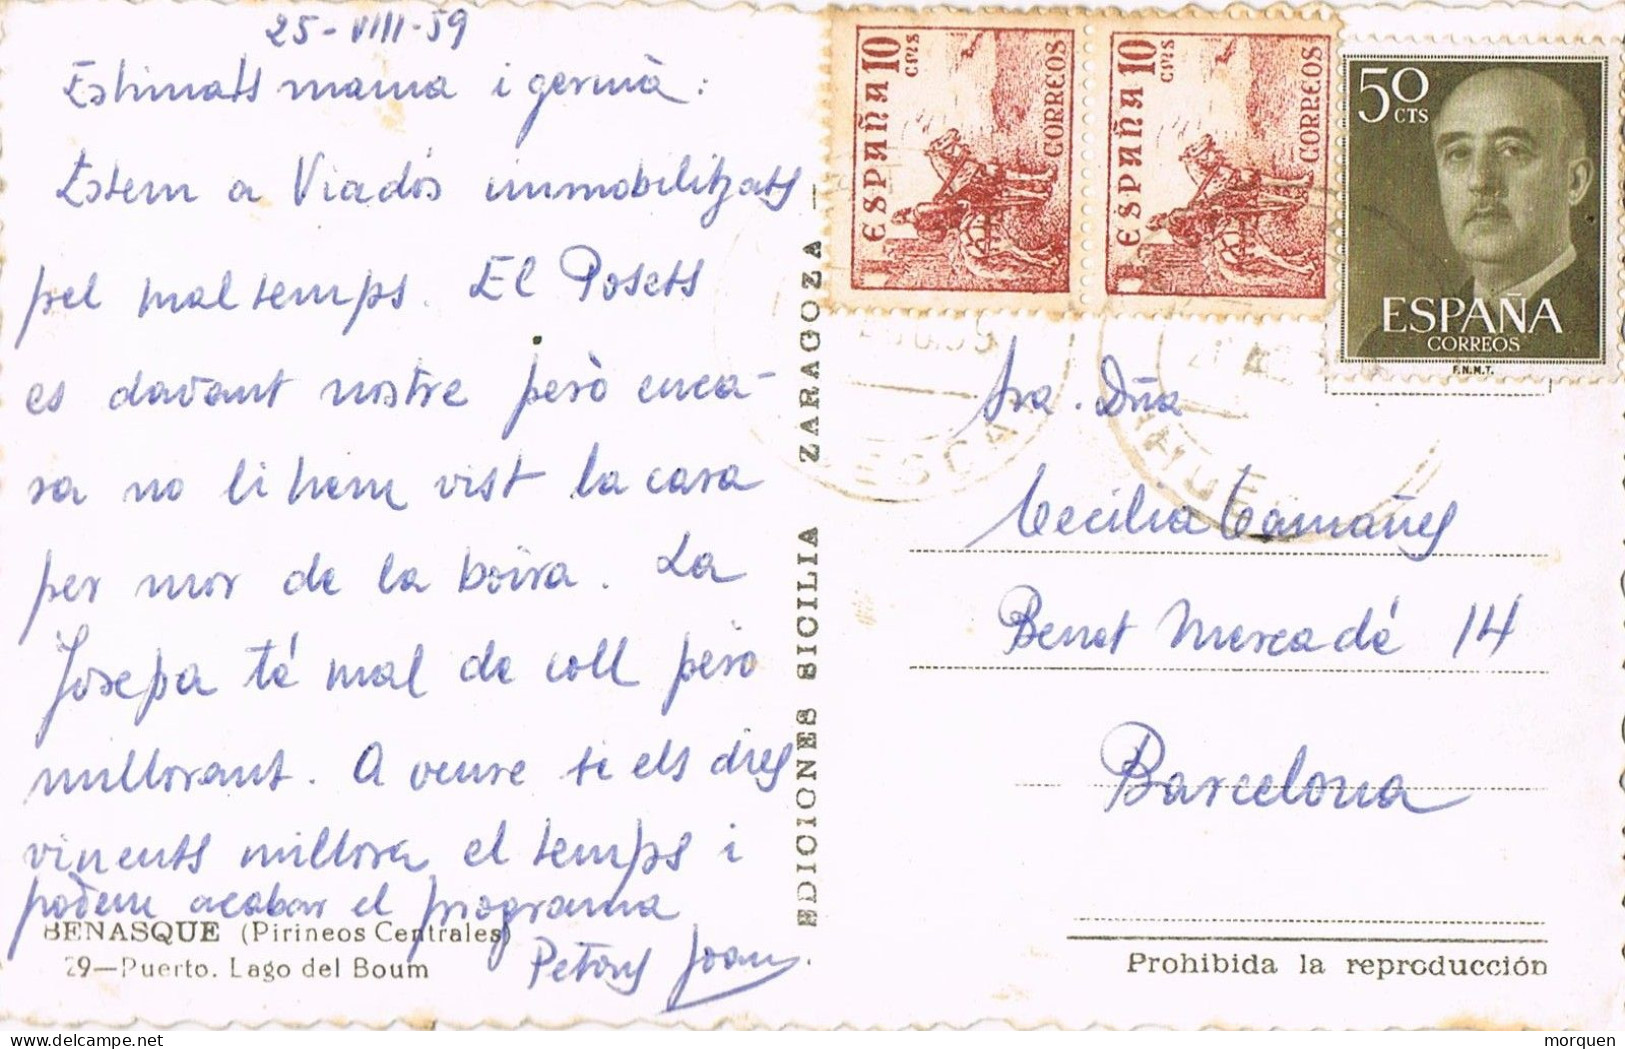 25-VIII-59
Estimats mama i germà:
Estem a Viadós immobilitzats
pel mal temps. El Posets
es davant nostre però enca-
ra no li hem vist la cara
per mor de la boira. La
Josepa té mal de coll però
millorant. A veure si els dies
vinents millora el temps i
podem acabar el programa
Petons Joan.
BENASQUE (Pirineos Centrales)
29—Puerto. Lago del Boum
EDICIONES SICILIA ZARAGOZA
ESPAÑA 10 CTS CORREOS
ESPAÑA 10 CTS CORREOS
50 CTS
ESPAÑA
CORREOS
F.N.M.T.
HUESCA
Sra. Dña
Cecilia Camañes
Benet Mercadé 14
Barcelona
Prohibida la reproducción
morquen